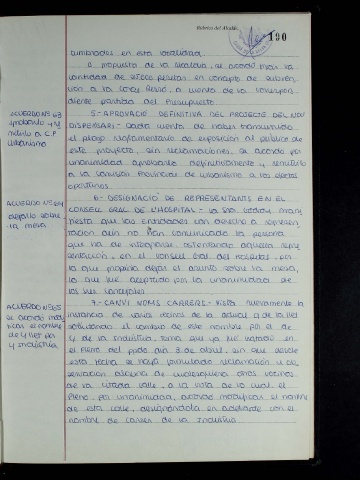 Rúbrica del Alcalde
190
cumbrados en esta localidad.
A propuesta de la Alcaldía, se acordó
cantidad de pesetas, en concepto de subven-
ción a la a cuenta de la correspon-
diente partida del Presupuesto.
ACUERDO Nº 63
Aprobarlo y
a C.P.
Urbanismo
5.- APROVACIÓ DEFINITIVA DEL PROJECTE DEL NOU
DISPENSARI.- Dada cuenta de haber transcurrido
el plazo reglamentario de exposición al público de
este proyecto, sin reclamaciones, se acordó por
unanimidad aprobarlo definitivamente y remitirlo
a la Comisión Provincial de Urbanismo a los efectos
oportunos.
ACUERDO Nº 64
dejarlo sobre
la mesa
6.- DESIGNACIÓ DE REPRESENTANTS EN EL
CONSELL GRAL DE L'HOSPITAL.- La Sra. mani-
fiesta que las Entidades con derecho a represen-
tación aún no han comunicado la persona
que ha de integrarse, ostentando aquella repre-
sentación, en el Consell Gral del por
lo que propone dejar el asunto sobre la mesa,
lo que fue aceptado por la unanimidad de
los Sres. Concejales.
ACUERDO Nº 65
se acordó modi-
ficar el nombre
de c/ Llet por
c/ Indústria
7.- CANVI NOMS CARRERS.- Vista nuevamente la
instancia de varios vecinos de la actual c/ de la Llet
solicitando el cambio de este nombre por el de
c/ de la Indústria, tema que ya fue tratado en
el Pleno del pasado día 3 de sin que desde
esta fecha se haya formulado reclamación u ob-
servación alguna de cualesquiera otros vecinos
de la citada calle, a la vista de lo cual, el
Pleno, por unanimidad, acordó modificar el nombre
de esta calle, designándola en adelante con el
nombre de Carrer de la Indústria.